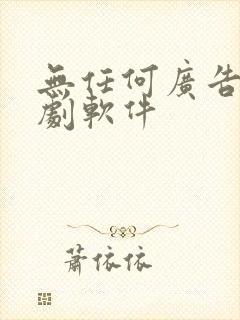 無任何廣告
劇軟件
蕭依依